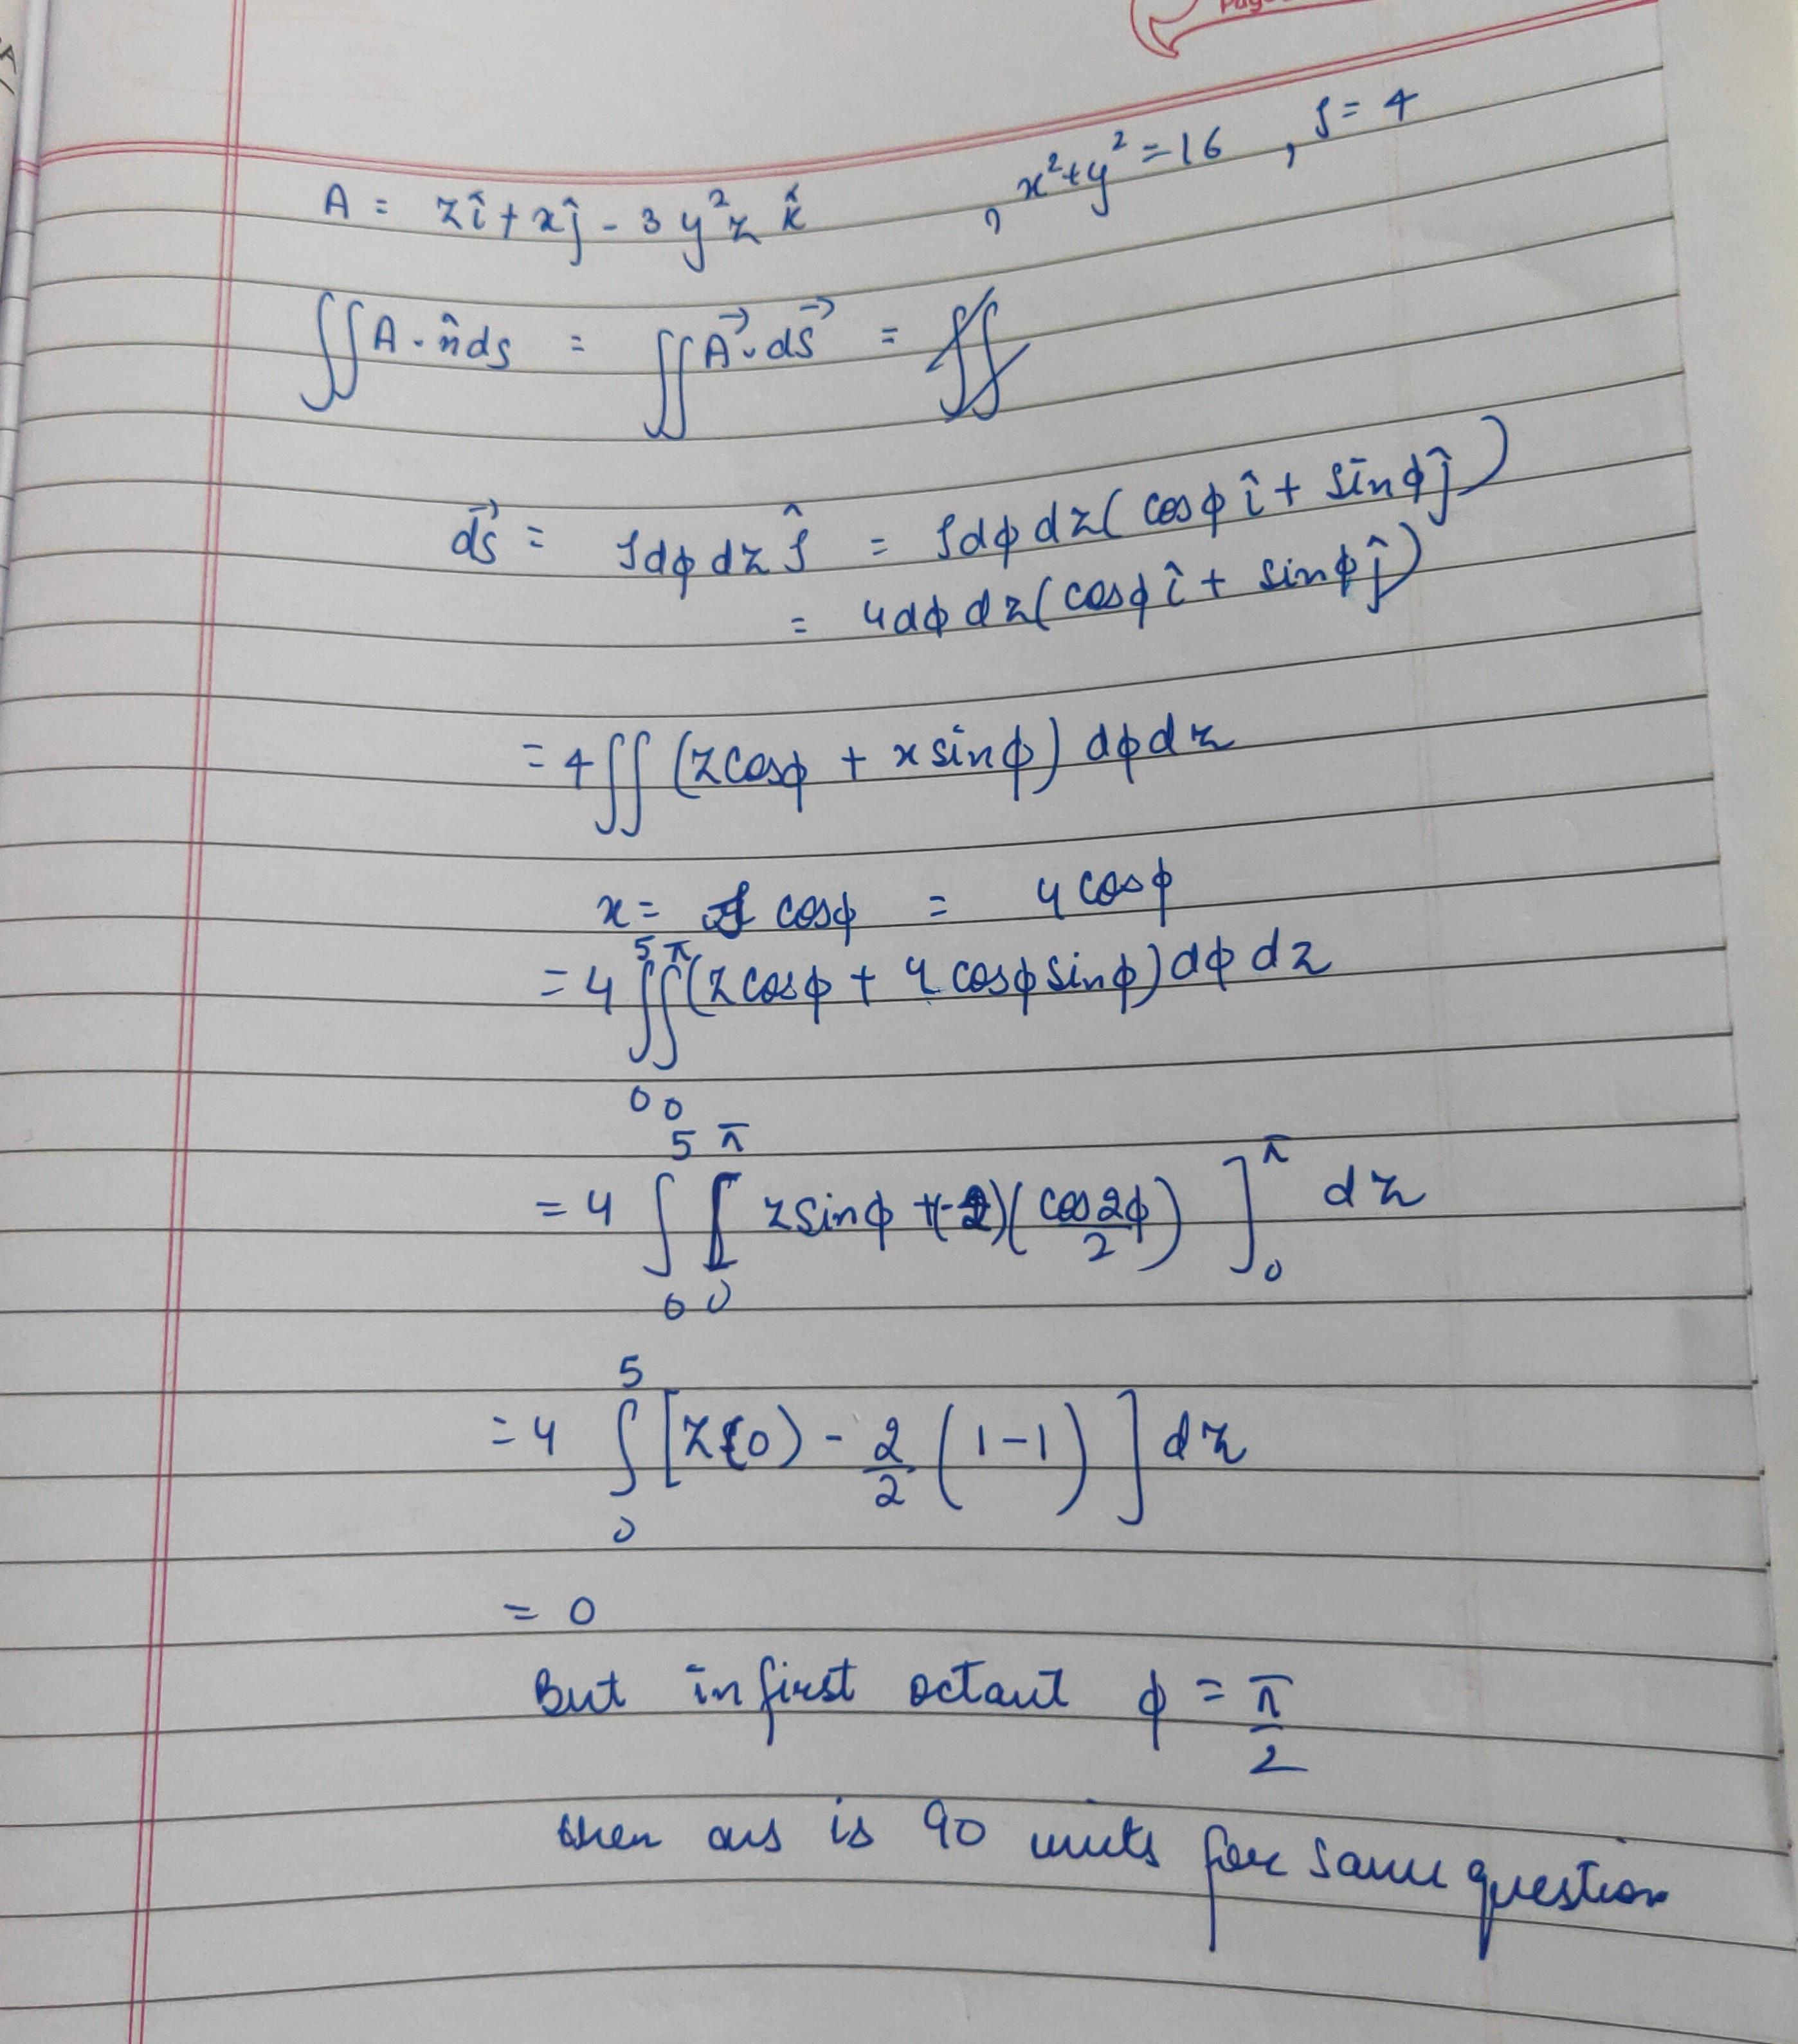 Pag
A = zî + xĵ - 3y²z k̂ , x²+y² = 16 , ρ = 4
∬A·n̂ds = ∬A⃗·dS⃗ =
ds⃗ = ρdϕdz ρ̂ = ρdϕdz(cosϕ î + sinϕ ĵ)
= 4dϕdz(cosϕ î + sinϕ ĵ)
= 4∬(zcosϕ + x sinϕ) dϕdz
x = ρ cosϕ = 4 cosϕ
= 4 ∫₀⁵∫₀^π (z cosϕ + 4 cosϕ sinϕ) dϕ dz
= 4 ∫₀⁵ ∫₀^π [z sinϕ + (-2)(cos2ϕ/2)]₀^π dz
= 4 ∫₀⁵ [z(0) - 2/2 (1-1)] dz
= 0
But in first octant ϕ = π/2
then ans is 90 units for same question